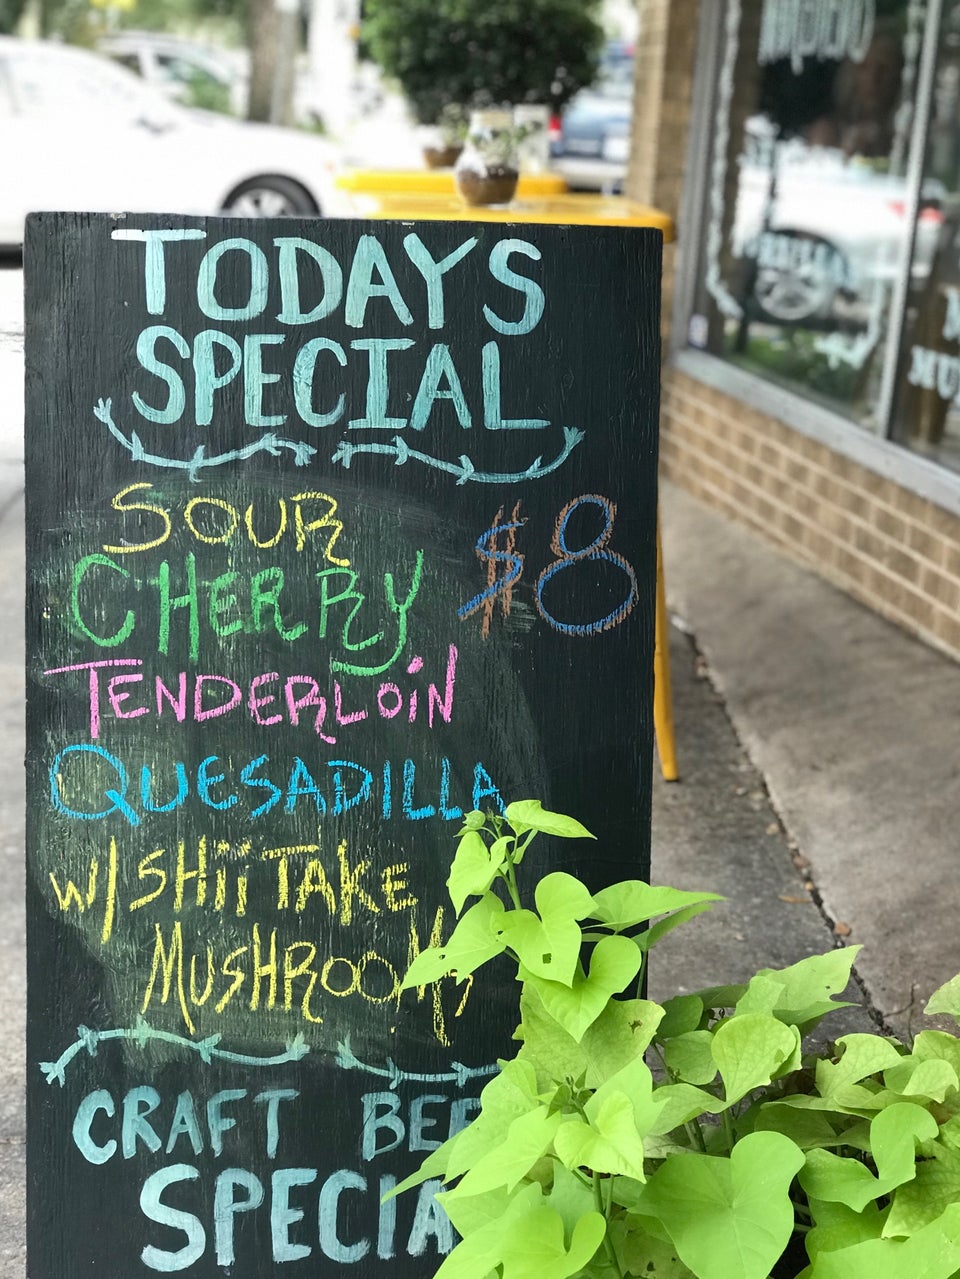 TODAYS
SPECIAL
SOUR $8
CHERRY
TENDERLOIN
QUESADILLA
W/ SHIITAKE
MUSHROOMS
CRAFT BEE
SPECIA